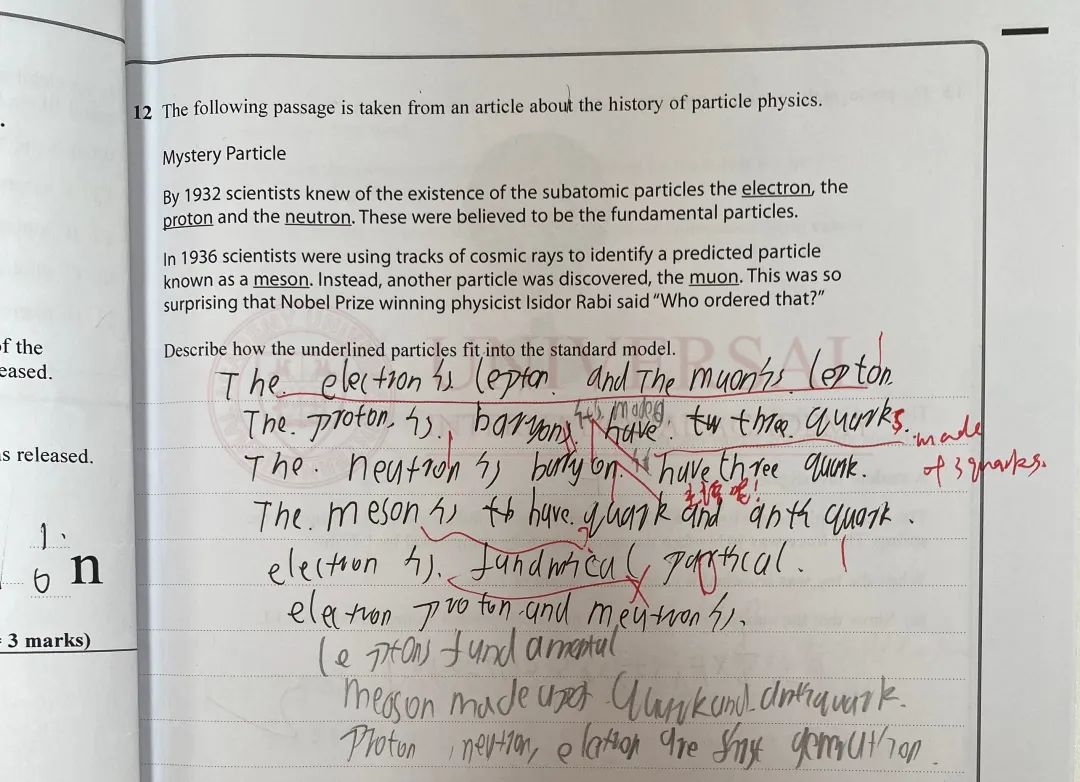 12 The following passage is taken from an article about the history of particle physics.
Mystery Particle
By 1932 scientists knew of the existence of the subatomic particles the electron, the
proton and the neutron. These were believed to be the fundamental particles.
In 1936 scientists were using tracks of cosmic rays to identify a predicted particle
known as a meson. Instead, another particle was discovered, the muon. This was so
surprising that Nobel Prize winning physicist Isidor Rabi said “Who ordered that?”
of the
eased.
Describe how the underlined particles fit into the standard model.
UNIVERSAL
The electron is lepton. and The muon is lepton.
The. proton. is. baryon have. three quarks.
made
of 3 quarks.
s released.
The. neutron is have three
The. meson is have. quark and anti quark.
1
6 n
electron is.
electron proton and
= 3 marks)
leptons fundamental
made quark and antiquark.
Proton, are